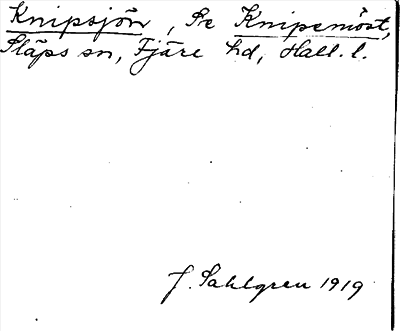 Knipsjön, Se Knipemöst,
Släps sn, Fjäre hd, Hall. l.
J. Sahlgren 1919